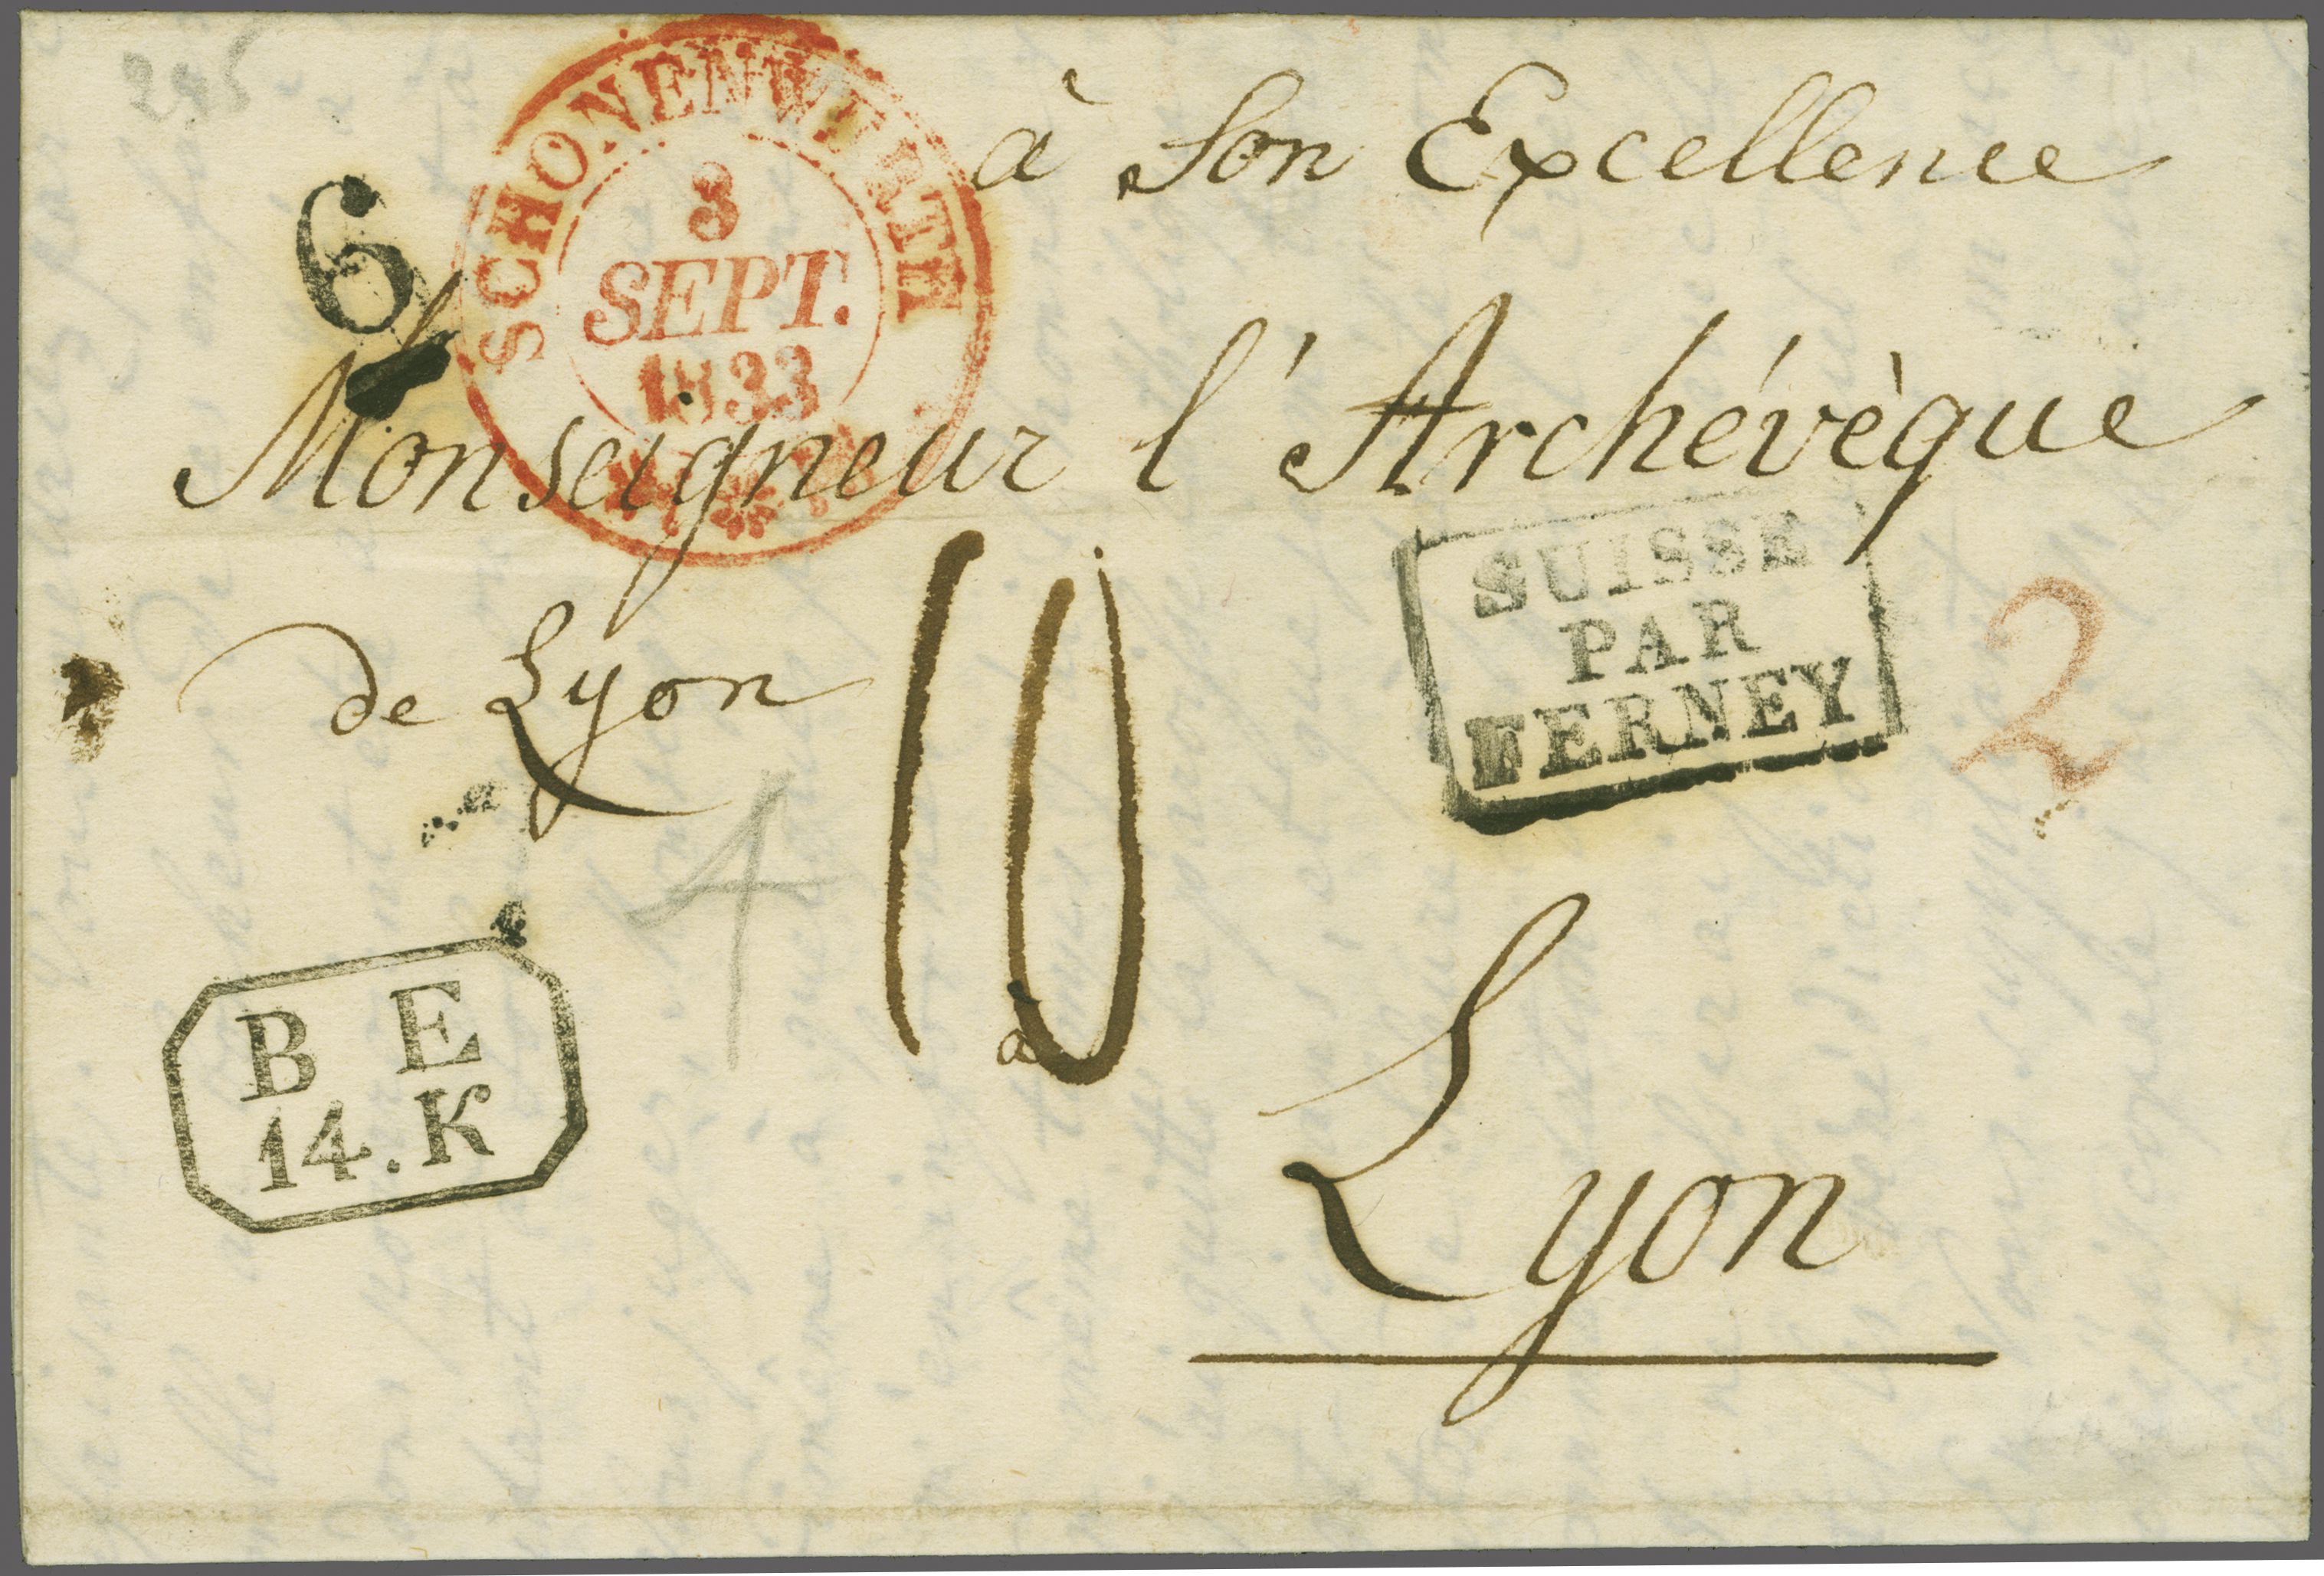 245
à Son Excellence
6
SCHONENWERTH
3
SEPT.
1833
Monseigneur l'Archévèque
de Lyon
10
SUISSE
PAR
FERNEY
2
4
B E
14.K
à
Lyon